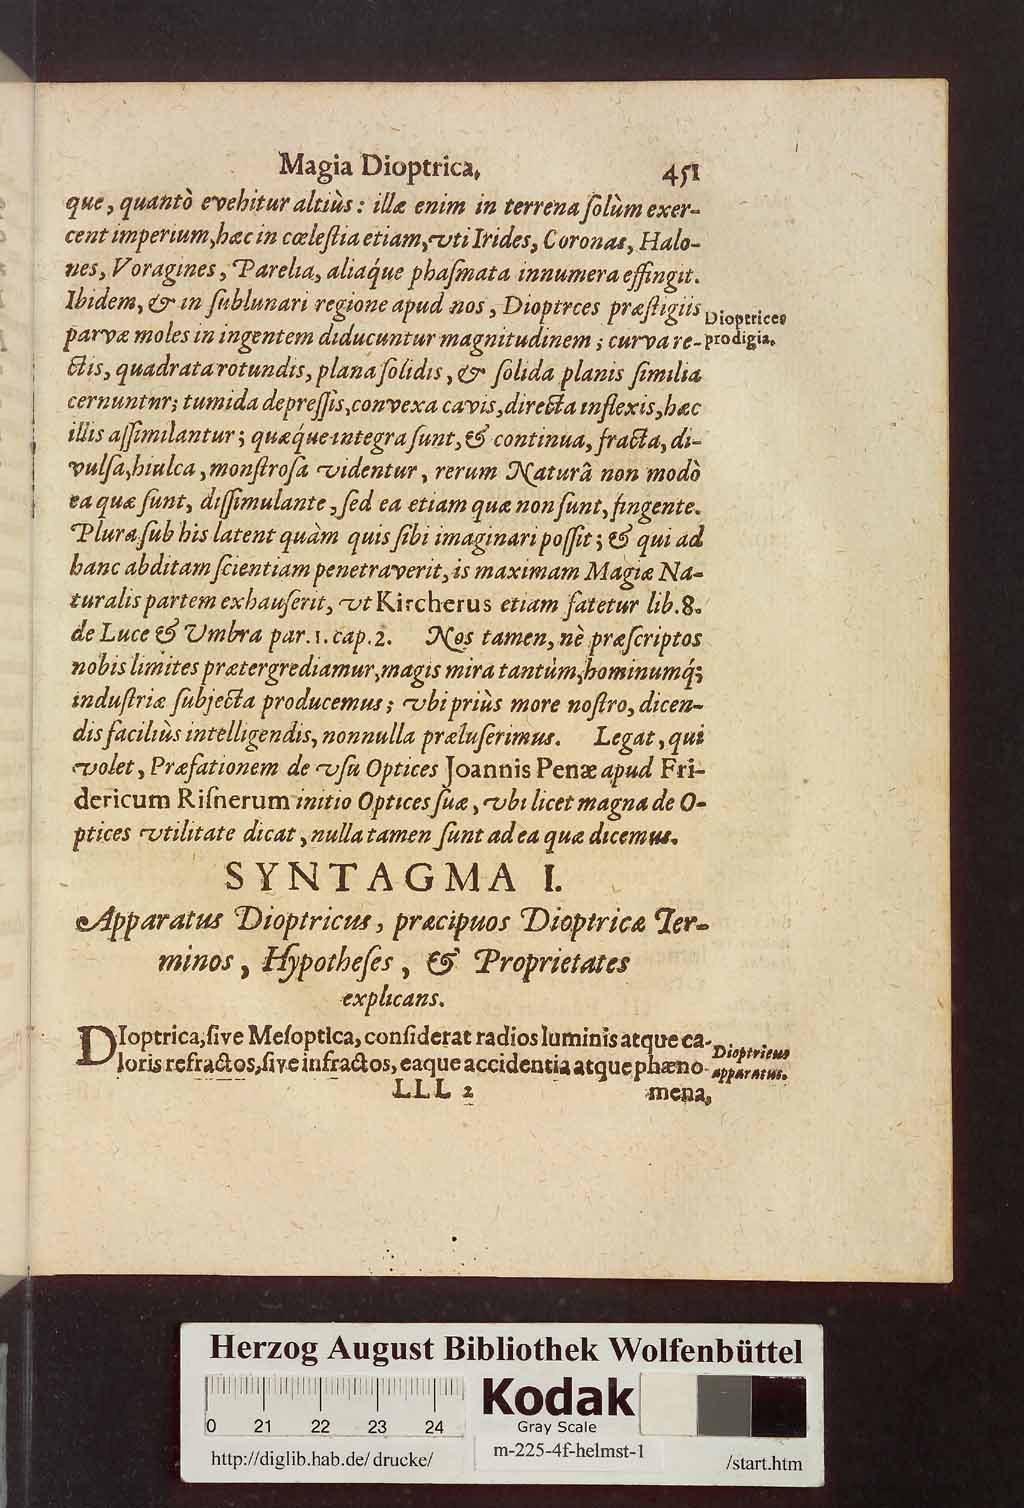 Magia Dioptrica. 451
que, quantò evehitur altiùs: illæ enim in terrena ſolùm exer-
cent imperium, hæc in cœleſtia etiam, vti Irides, Coronas, Halo-
nes, Voragines, Parelia, aliaq́ue phaſmata innumera effingit.
Ibidem, & in ſublunari regione apud nos, Dioptrces præſtigiis
parvæ moles in ingentem diducuntur magnitudinem; curva re-
ctis, quadrata rotundis, plana ſolidis, & ſolida planis ſimilia
cernuntnr; tumida depreſſis, convexa cavis, directa inflexis, hæc
illis aſſimilantur; quæq́ue integra ſunt, & continua, fracta, di-
vulſa, hiulca, monſtroſa videntur, rerum Naturâ non modò
ea quæ ſunt, diſſimulante, ſed ea etiam quæ non ſunt, fingente.
Plura ſub his latent quàm quis ſibi imaginari poſſit; & qui ad
hanc abditam ſcientiam penetraverit, is maximam Magiæ Na-
turalis partem exhauſerit, vt Kircherus etiam fatetur lib. 8.
de Luce & Umbra par. 1. cap. 2. Nos tamen, nè præſcriptos
nobis limites prætergrediamur, magis mira tantùm, hominumq́;
induſtriæ ſubjecta producemus; vbi priùs more noſtro, dicen-
dis faciliùs intelligendis, nonnulla præluſerimus. Legat, qui
volet, Præfationem de vſu Optices Joannis Penæ apud Fri-
dericum Riſnerum initio Optices ſuæ, vbi licet magna de O-
ptices vtilitate dicat, nulla tamen ſunt ad ea quæ dicemus.
Dioptrices
prodigia.
SYNTAGMA I.
Apparatus Dioptricus, præcipuos Dioptricæ Ter-
minos, Hypotheſes, & Proprietates
explicans.
DIoptrica, ſive Meſoptica, conſiderat radios luminis atque ca-
loris refractos, ſive infractos, eaque accidentia atque phæno-
Dioptricus
apparatus.
LLL 2 mena,
Herzog August Bibliothek Wolfenbüttel
0 21 22 23 24
Kodak
Gray Scale
http://diglib.hab.de/drucke/ m-225-4f-helmst-1 /start.htm